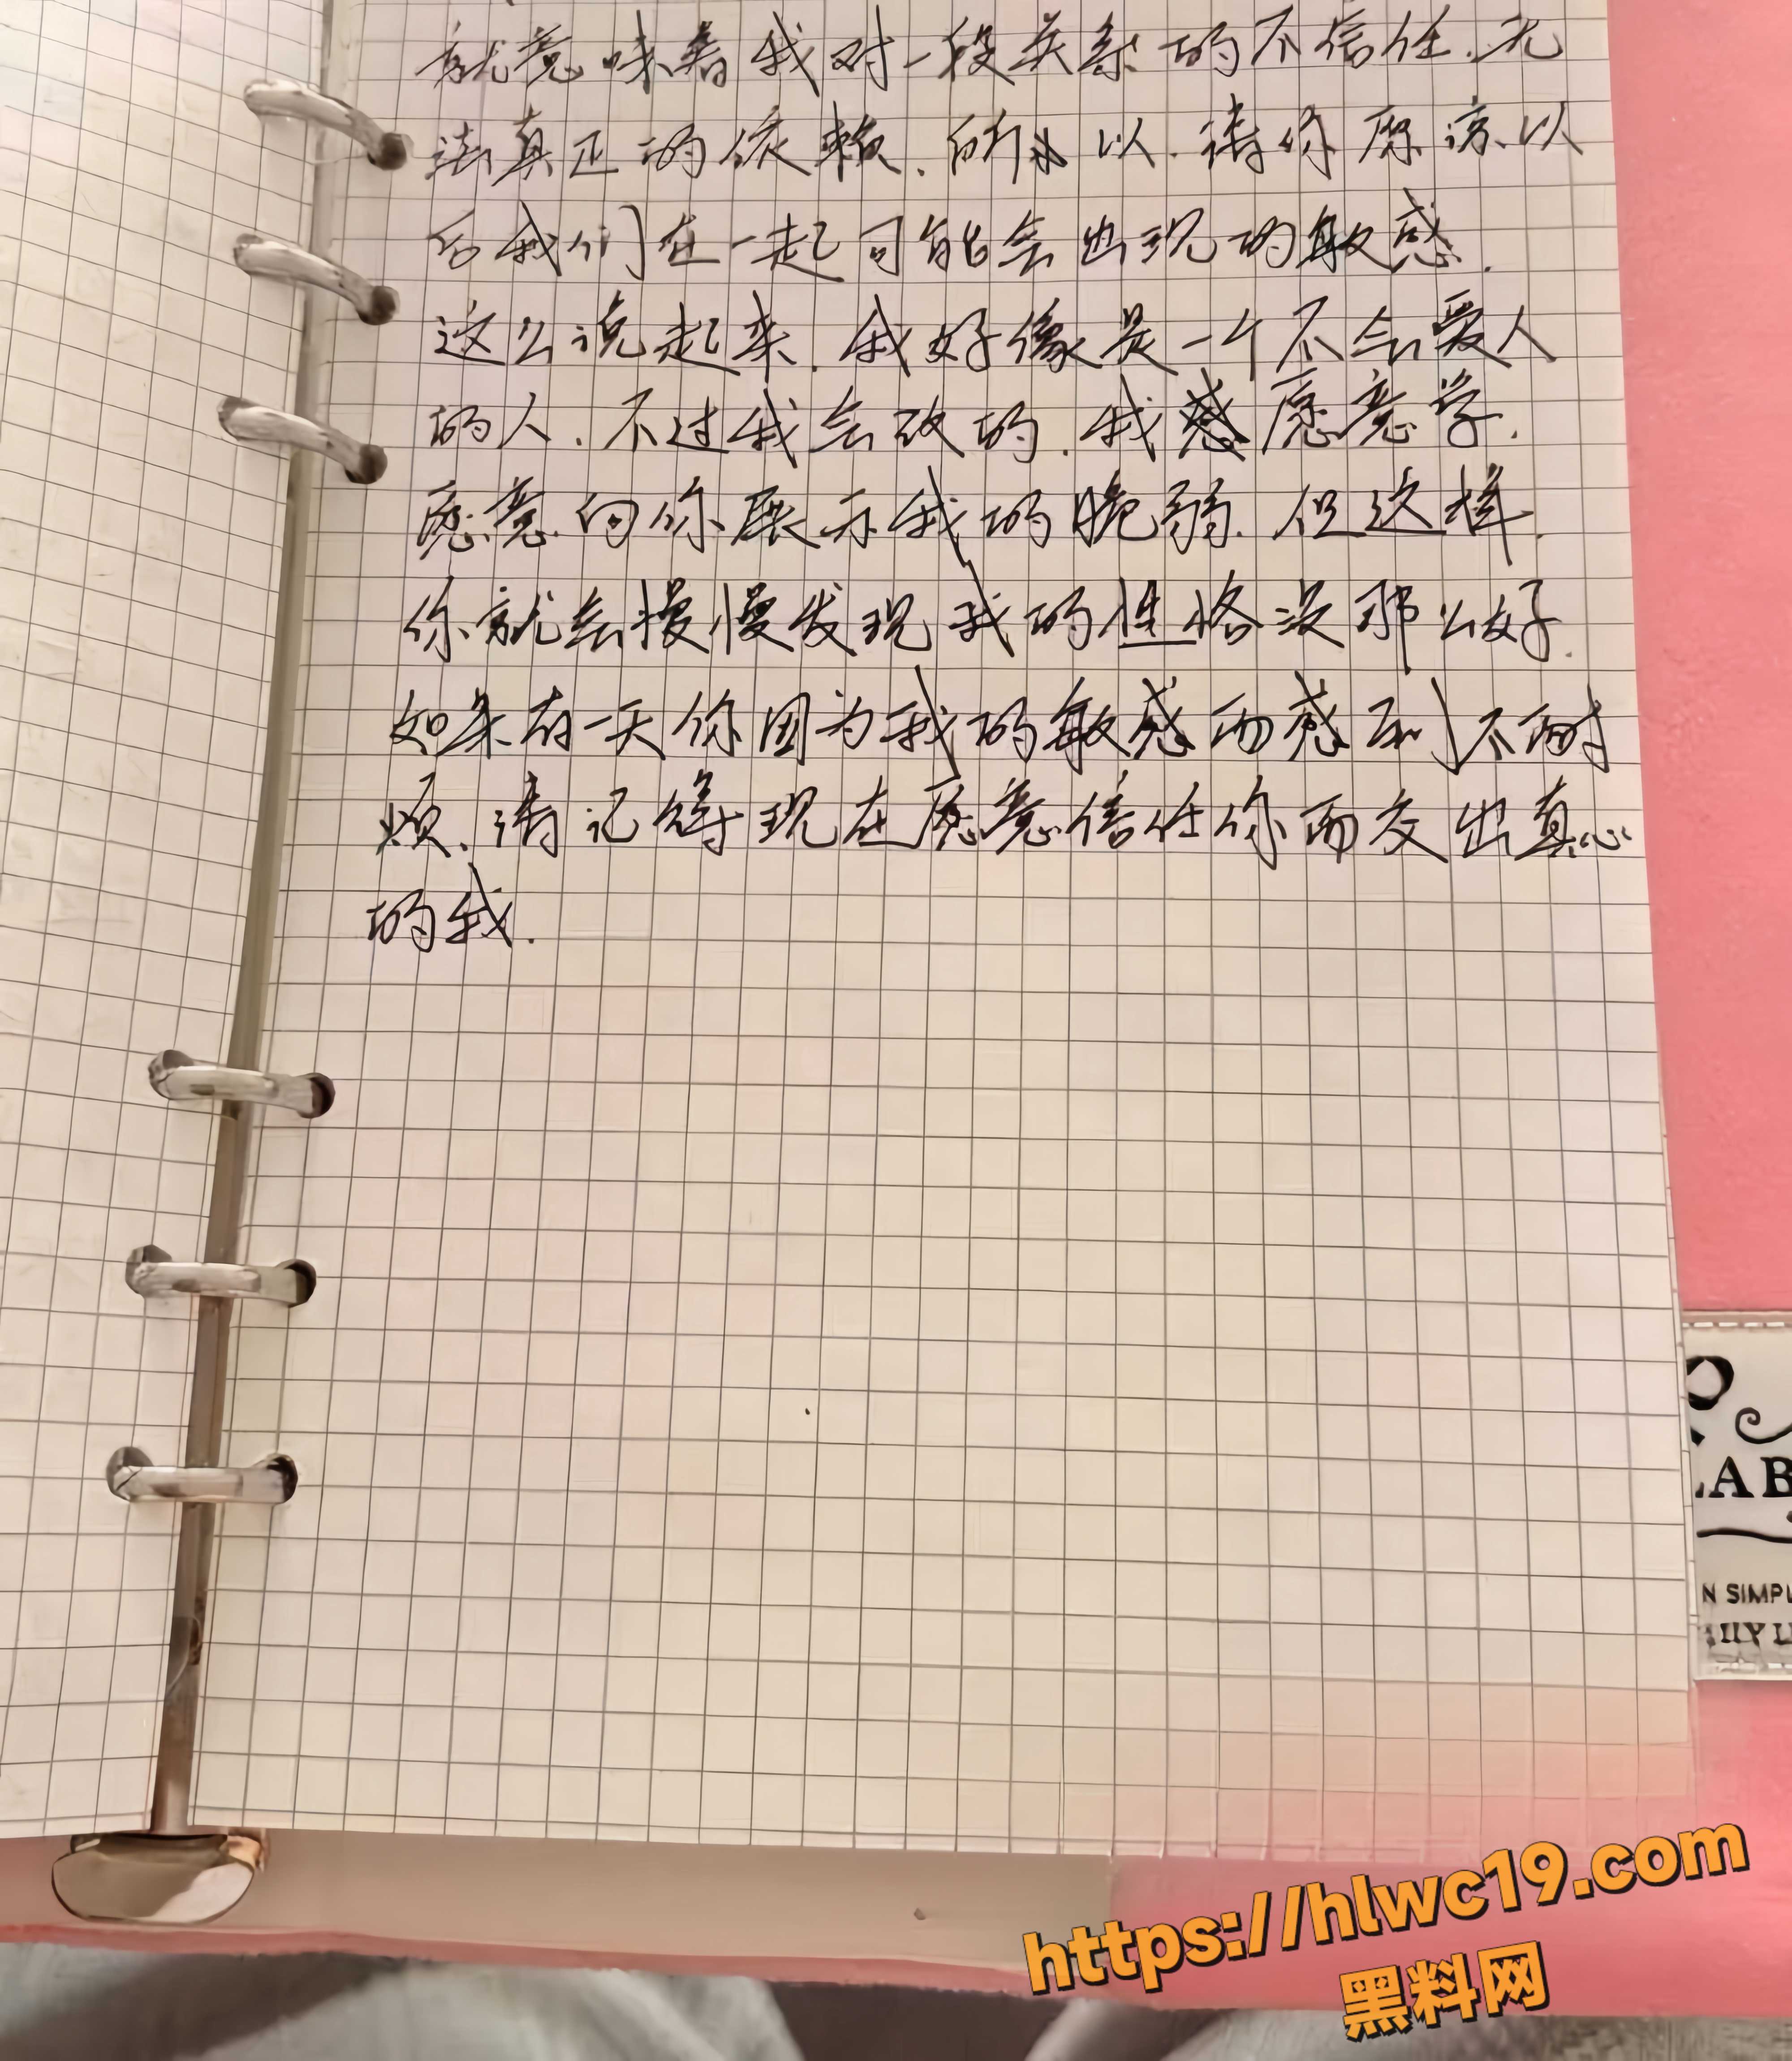 就意味着我对一段关系的不信任.无
法真正的依赖.所以.请你原谅以
后我们在一起可能会出现的敏感.
这么说起来.我好像是一个不会爱人
的人.不过我会改的.我愿意学.
愿意向你展示我的脆弱.但这样.
你就会慢慢发现我的性格没那么好.
如果有一天你因为我的敏感而感到不耐
烦.请记得现在愿意信任你而交出真心
的我.
LAB
N SIMPL
https://hlwc19.com
黑料网